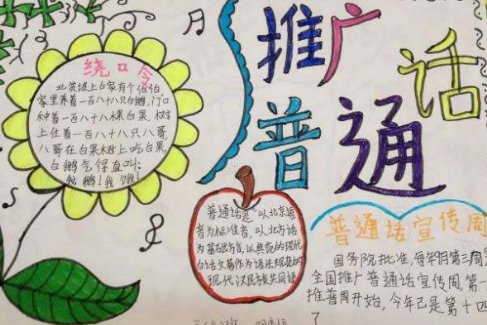 推广
普通话
绕口令
北贫坡上白家有个伯伯
家里养着一百八十八只白鹅,门口
种着一百八十八棵白果,树
上住着一百八十八只八哥,
八哥在白果树上吃白果,
白鹅气得直叫:
我鹅!我饿!
普通话是以北京语
音为标准音,以北方话
为基础方言,以典范的现代
白话文著作为语法规范的
现代汉民族共同语
普通话宣传周
国务院批准,每年9月第三周
全国推广普通话宣传周,第一
推普周开始,今年已是第十四
了